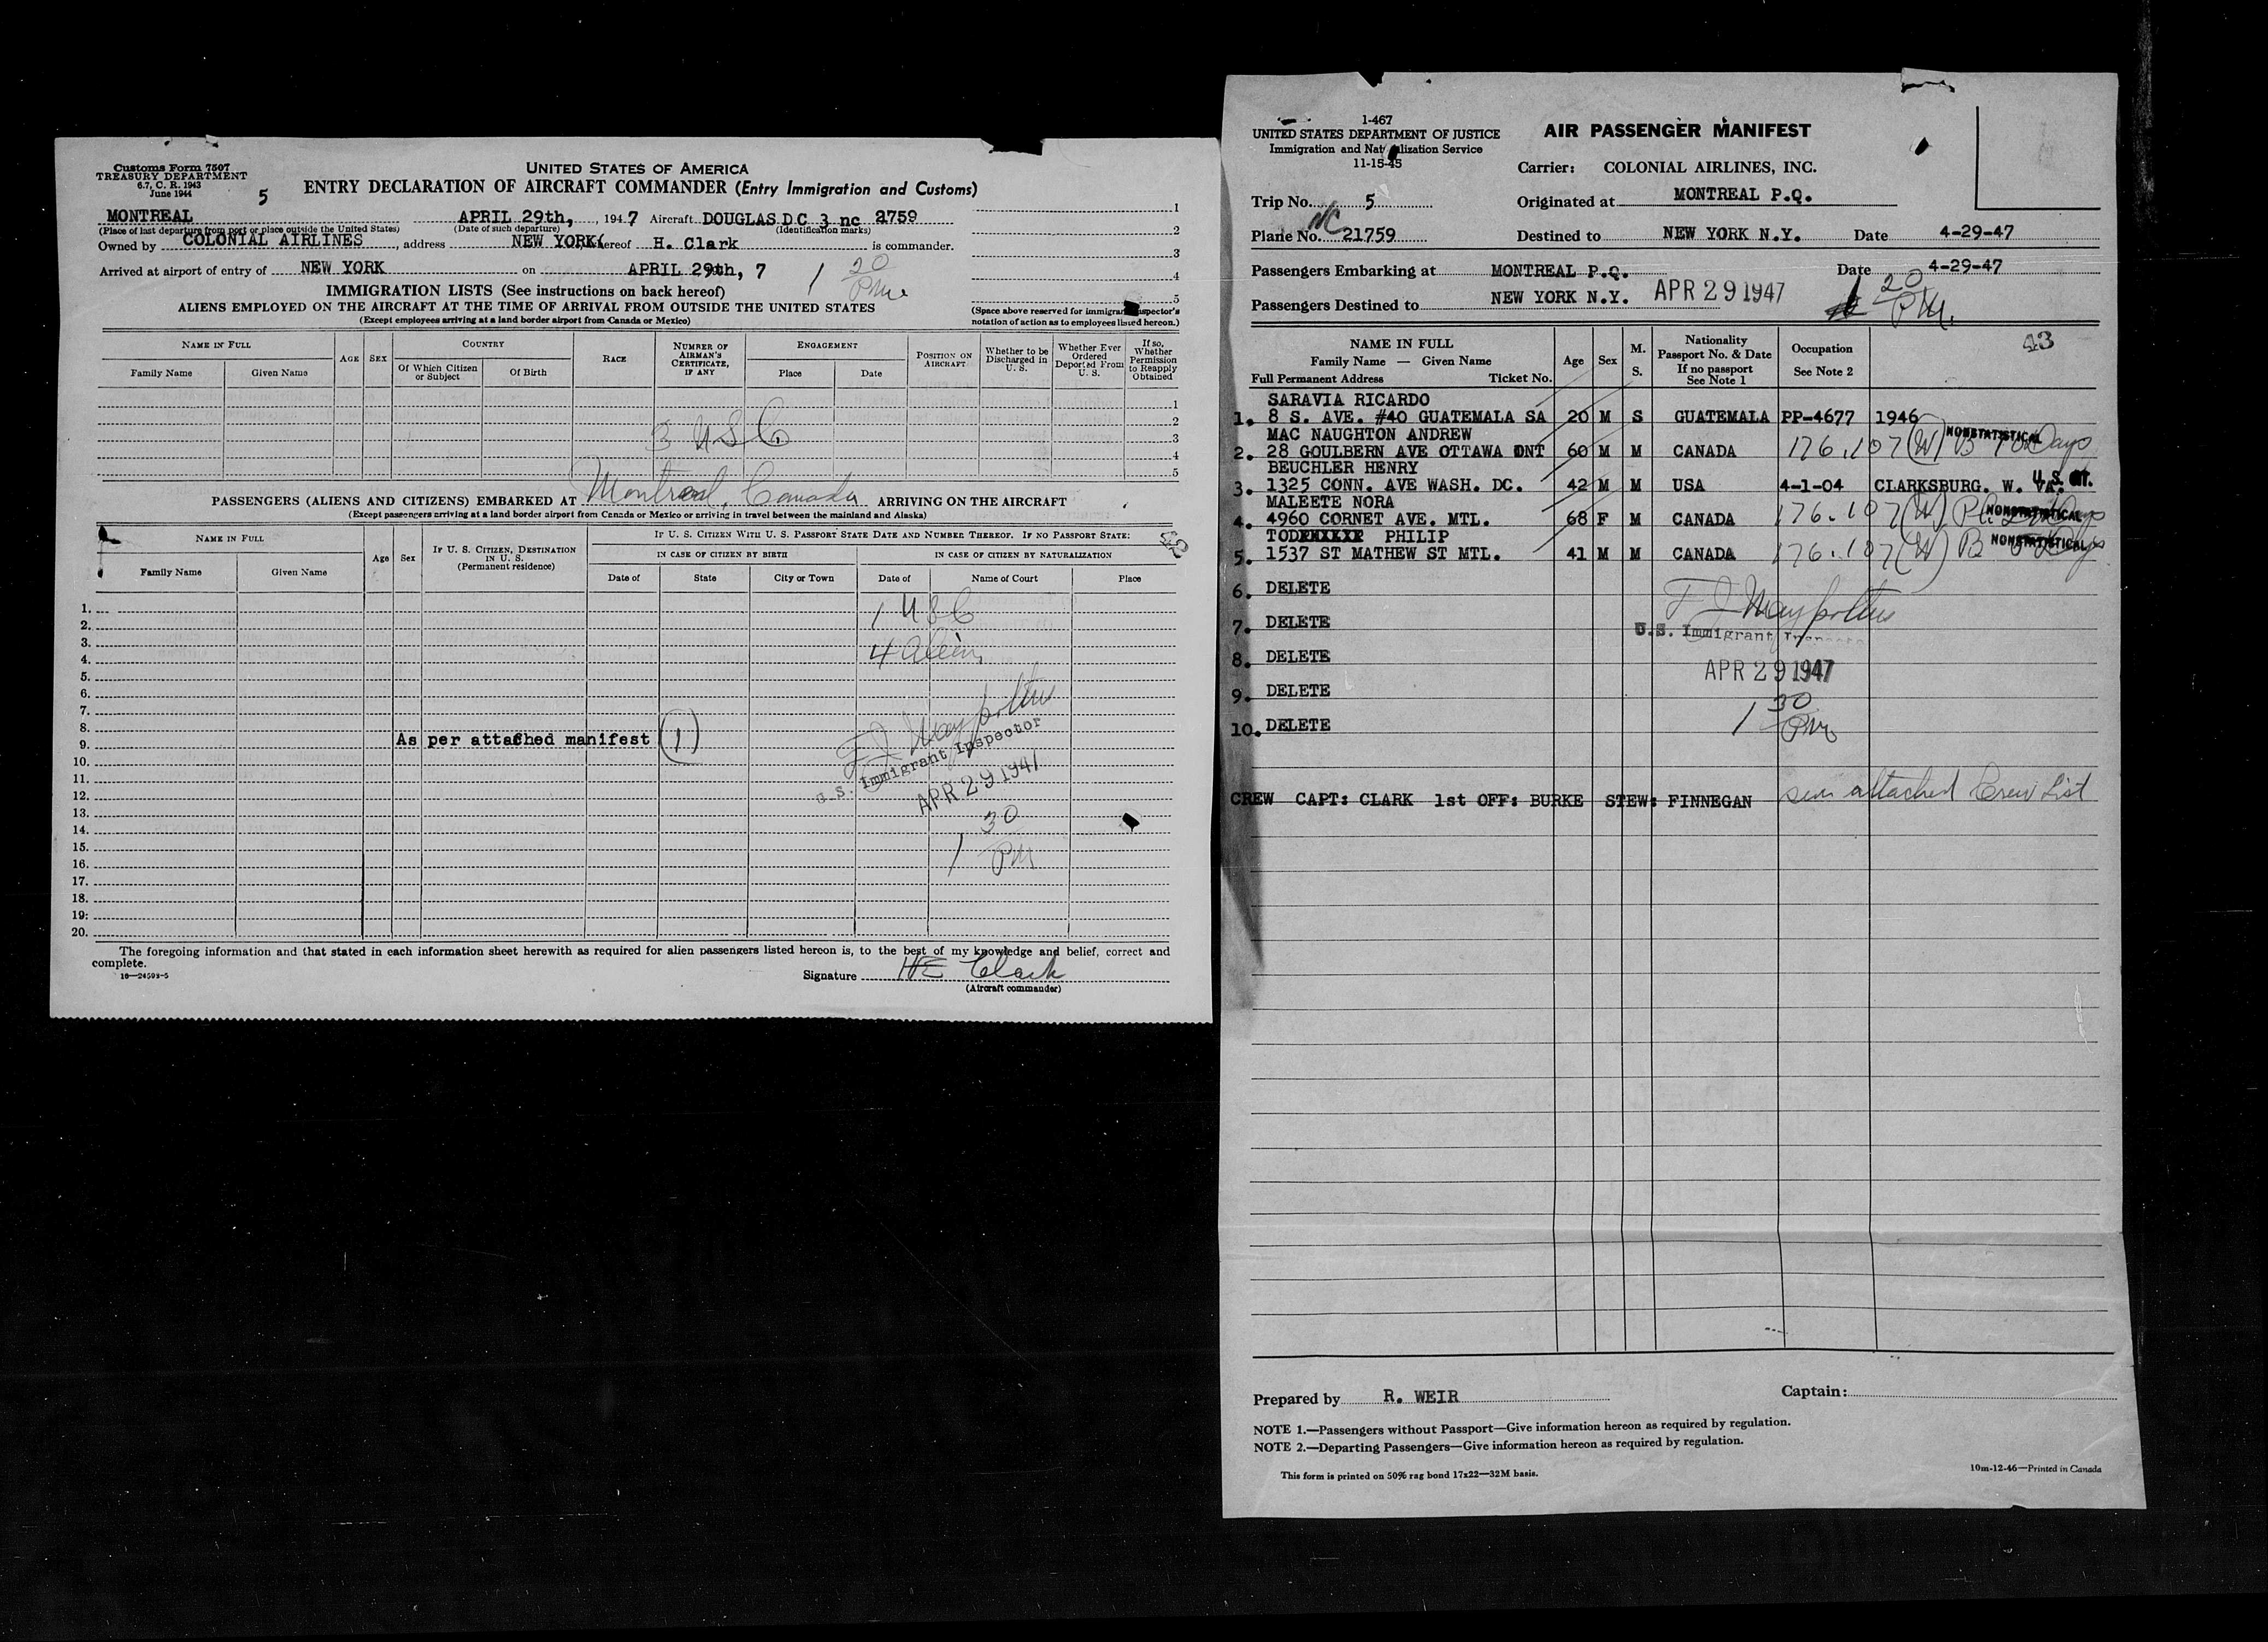 Customs Form 7507
TREASURY DEPARTMENT
6.7, C. R. 1943
June 1944
5
UNITED STATES OF AMERICA
ENTRY DECLARATION OF AIRCRAFT COMMANDER (Entry Immigration and Customs)
MONTREAL APRIL 29th, , 194 7 Aircraft DOUGLAS D C 3 nc 2759
(Place of last departure from port or place outside the United States) (Date of such departure) (Identification marks)
Owned by COLONIAL AIRLINES , address NEW YORK( hereof H. Clark is commander.
Arrived at airport of entry of NEW YORK on APRIL 29th, 7 1 20 PM
1
2
3
4
5
IMMIGRATION LISTS (See instructions on back hereof)
ALIENS EMPLOYED ON THE AIRCRAFT AT THE TIME OF ARRIVAL FROM OUTSIDE THE UNITED STATES
(Except employees arriving at a land border airport from Canada or Mexico)
(Space above reserved for immigrant inspector's
notation of action as to employees listed hereon.)
NAME IN FULL
Family Name Given Name
AGE
SEX
COUNTRY
Of Which Citizen or Subject
Of Birth
RACE
NUMBER OF AIRMAN'S CERTIFICATE, IF ANY
ENGAGEMENT
Place Date
POSITION ON AIRCRAFT
Whether to be Discharged in U. S.
Whether Ever Ordered Deported From U. S.
If so, Whether Permission to Reapply Obtained
1
2
3 U S C. 3
4
5
PASSENGERS (ALIENS AND CITIZENS) EMBARKED AT Montreal, Canada ARRIVING ON THE AIRCRAFT
(Except passengers arriving at a land border airport from Canada or Mexico or arriving in travel between the mainland and Alaska)
NAME IN FULL
Family Name Given Name
Age
Sex
IF U. S. CITIZEN, DESTINATION IN U. S.
(Permanent residence)
IF U. S. CITIZEN WITH U. S. PASSPORT STATE DATE AND NUMBER THEREOF. IF NO PASSPORT STATE:
43
IN CASE OF CITIZEN BY BIRTH IN CASE OF CITIZEN BY NATURALIZATION
Date of State City or Town Date of Name of Court Place
1. 1 U S C
2.
3. 4 Aliens
4.
5.
6.
7.
8.
9. As per attached manifest (1)
F J Mayforther
U.S. Immigrant Inspector
APR 29 1947
10.
11.
12.
13.
14. 1 30 PM
15.
16.
17.
18.
19:
20.
The foregoing information and that stated in each information sheet herewith as required for alien passengers listed hereon is, to the best of my knowledge and belief, correct and
complete.
16—24593-5
Signature HE Clark
(Aircraft commander)
1-467
UNITED STATES DEPARTMENT OF JUSTICE
Immigration and Naturalization Service
11-15-45
AIR PASSENGER MANIFEST
Carrier: COLONIAL AIRLINES, INC.
Trip No. 5 Originated at MONTREAL P.Q.
Plane No. NC 21759 Destined to NEW YORK N.Y. Date 4-29-47
Passengers Embarking at MONTREAL P.Q. Date 4-29-47
Passengers Destined to NEW YORK N.Y. APR 29 1947 1 20 PM.
43
NAME IN FULL
Family Name — Given Name
Full Permanent Address Ticket No.
Age
Sex
M. S.
Nationality
Passport No. & Date
If no passport
See Note 1
Occupation
See Note 2
SARAVIA RICARDO
1. 8 S. AVE. #40 GUATEMALA SA 20 M S GUATEMALA PP-4677 1946
MAC NAUGHTON ANDREW
2. 28 GOULBERN AVE OTTAWA ONT 60 M M CANADA 176.107 (W) B 10 Days NONSTATISTICAL
BEUCHLER HENRY
3. 1325 CONN. AVE WASH. DC. 42 M M USA 4-1-04 CLARKSBURG. W. VA. U.S.
MALEETE NORA
4. 4960 CORNET AVE. MTL. 68 F M CANADA 176.107 (W) Pl. NONSTATISTICAL
TODXXXXXX PHILIP
5. 1537 ST MATHEW ST MTL. 41 M M CANADA 176.107 (W) B NONSTATISTICAL
6. DELETE
7. DELETE
F J Mayforther
U.S. Immigrant Inspector
8. DELETE
APR 29 1947
9. DELETE
10. DELETE
1 30 PM
CREW CAPT: CLARK 1st OFF: BURKE STEW: FINNEGAN see attached Crew List
Prepared by R. WEIR Captain:
NOTE 1.—Passengers without Passport—Give information hereon as required by regulation.
NOTE 2.—Departing Passengers—Give information hereon as required by regulation.
This form is printed on 50% rag bond 17x22—32M basis.
10m-12-46—Printed in Canada